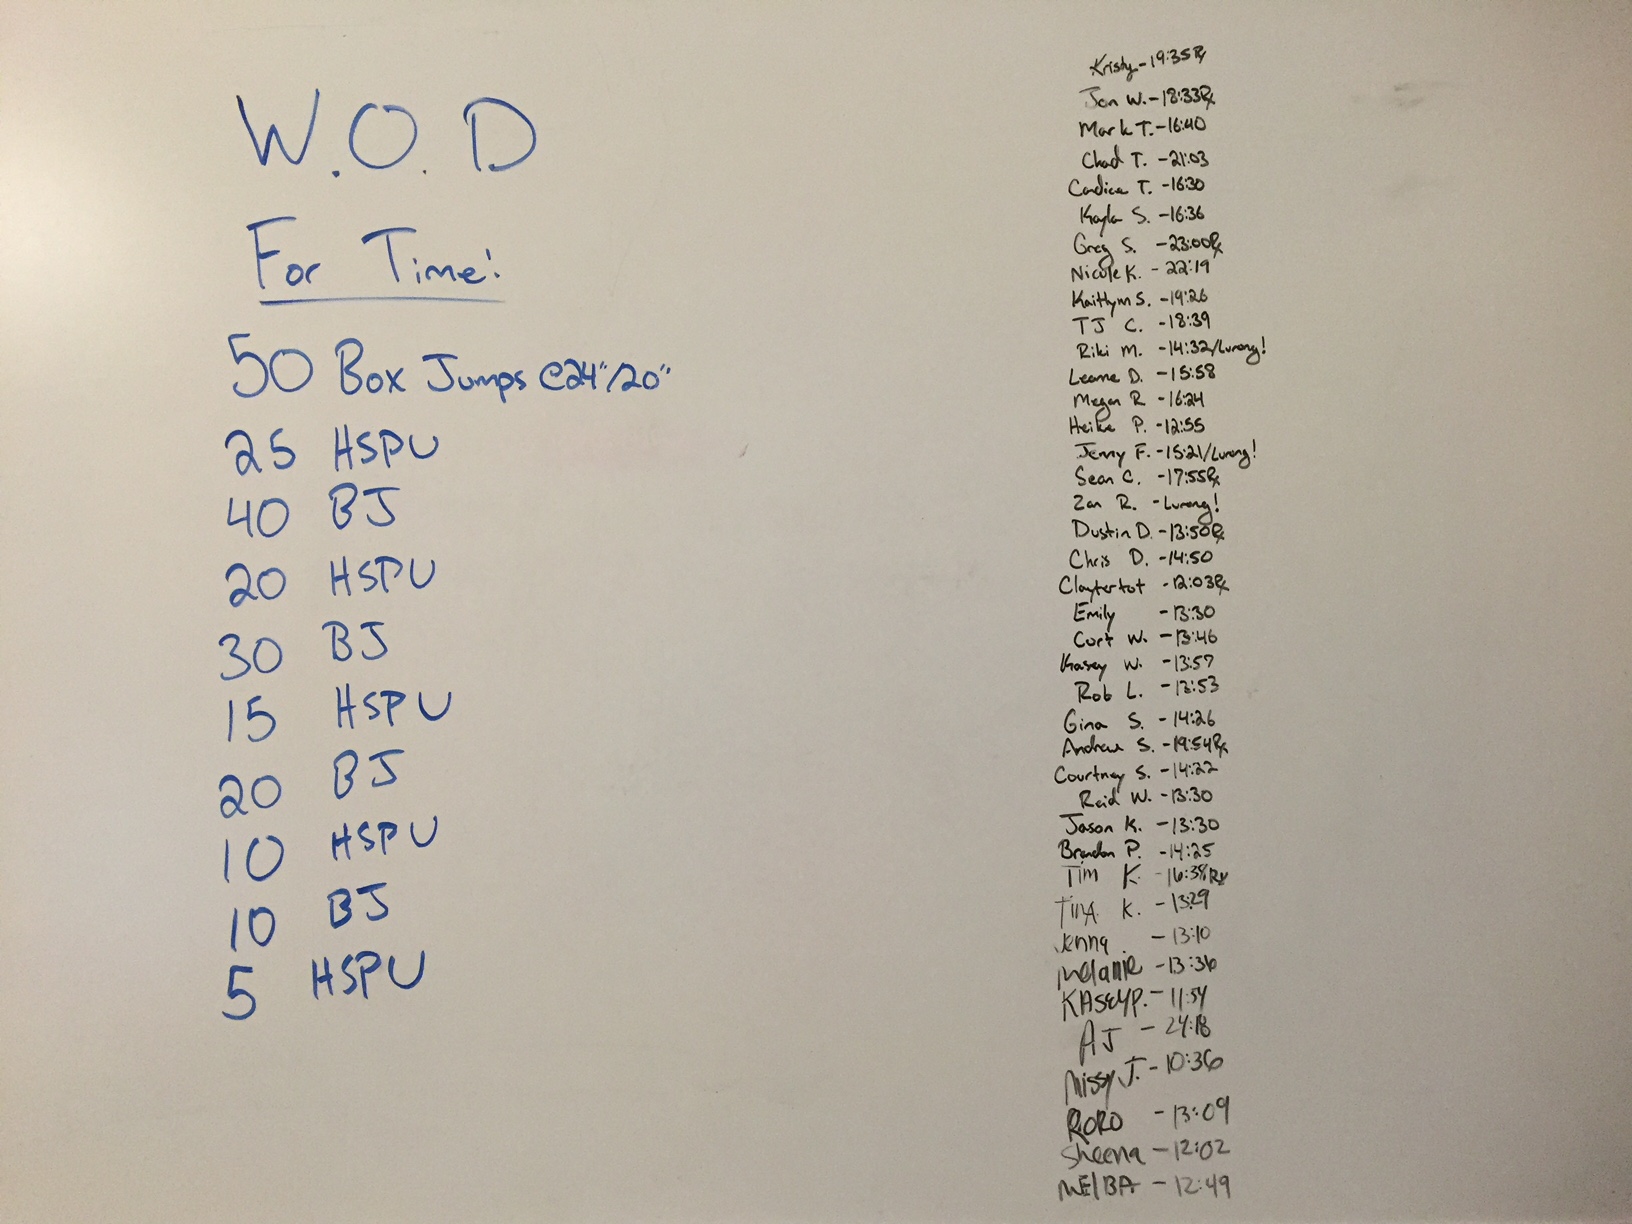 W.O.D
For Time:
50 Box Jumps @24"/20"
25 HSPU
40 BJ
20 HSPU
30 BJ
15 HSPU
20 BJ
10 HSPU
10 BJ
5 HSPU
Kristy - 19:35Rx
Jon W. - 18:33Rx
Mark T. - 16:40
Chad T. - 21:03
Candice T. - 16:30
Kayla S. - 16:36
Greg S. - 23:00Rx
Nicole K. - 22:19
Kaitlynn S. - 19:26
TJ C. - 18:39
Riki M. - 14:32/Lurong!
Leanne D. - 15:58
Megan R - 16:24
Heike P. - 12:55
Jenny F. - 15:21/Lurong!
Sean C. - 17:55Rx
Zan R. - Lurong!
Dustin D. - 13:50Rx
Chris D. - 14:50
Claytertot - 12:03Rx
Emily - 13:30
Curt W. - 13:46
Kasey W. - 13:57
Rob L. - 13:53
Gina S. - 14:26
Andrew S. - 19:54Rx
Courtney S. - 14:22
Reid W. - 13:30
Jason K. - 13:30
Brendan P. - 14:25
Tim K - 16:38Rx
TINA K. - 13:29
Jenna - 13:10
Melanie - 13:36
KASEY P. - 11:54
AJ - 24:18
Missy J. - 10:36
RORO - 13:09
Sheena - 12:02
MElBA - 12:49